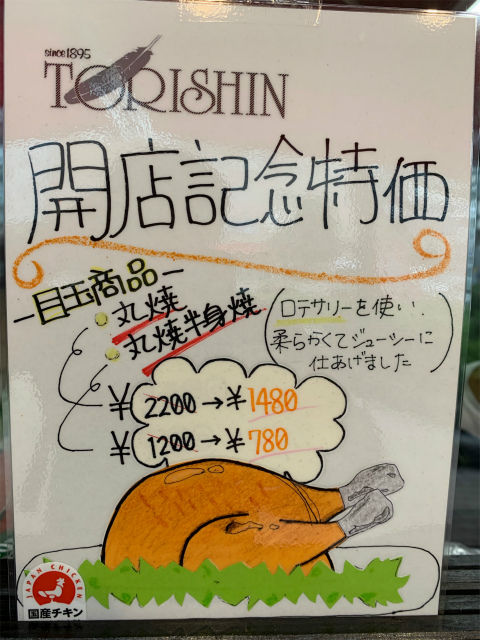 since1895
TORISHIN
開店記念特価
-目玉商品-
丸焼
丸焼半身焼
(ロテサリーを使い、
柔らかくてジューシーに
仕あげました)
¥2200→¥1480
¥1200→¥780
JAPAN CHICKEN
国産チキン